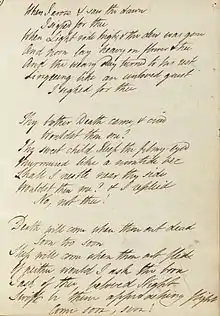 When I arose & saw the dawn
I sighed for thee
When Light rode high & the dew was gone
And noon lay heavy on flower & tree
And the weary Day turned to his rest
Lingering like an unloved guest
I sighed for thee
Thy brother Death came, & cried
Wouldst thou me?
Thy sweet child Sleep the filmy eyed
Murmured like a noontide bee
Shall I nestle near thy side
Wouldst thou me? & I replied
No, not thee!
Death will come when thou art dead
Soon too soon
Sleep will come when thou art fled
Of neither would I ask the boon
I ask of thee beloved Night
Swift be thine approaching flight
Come soon, soon!